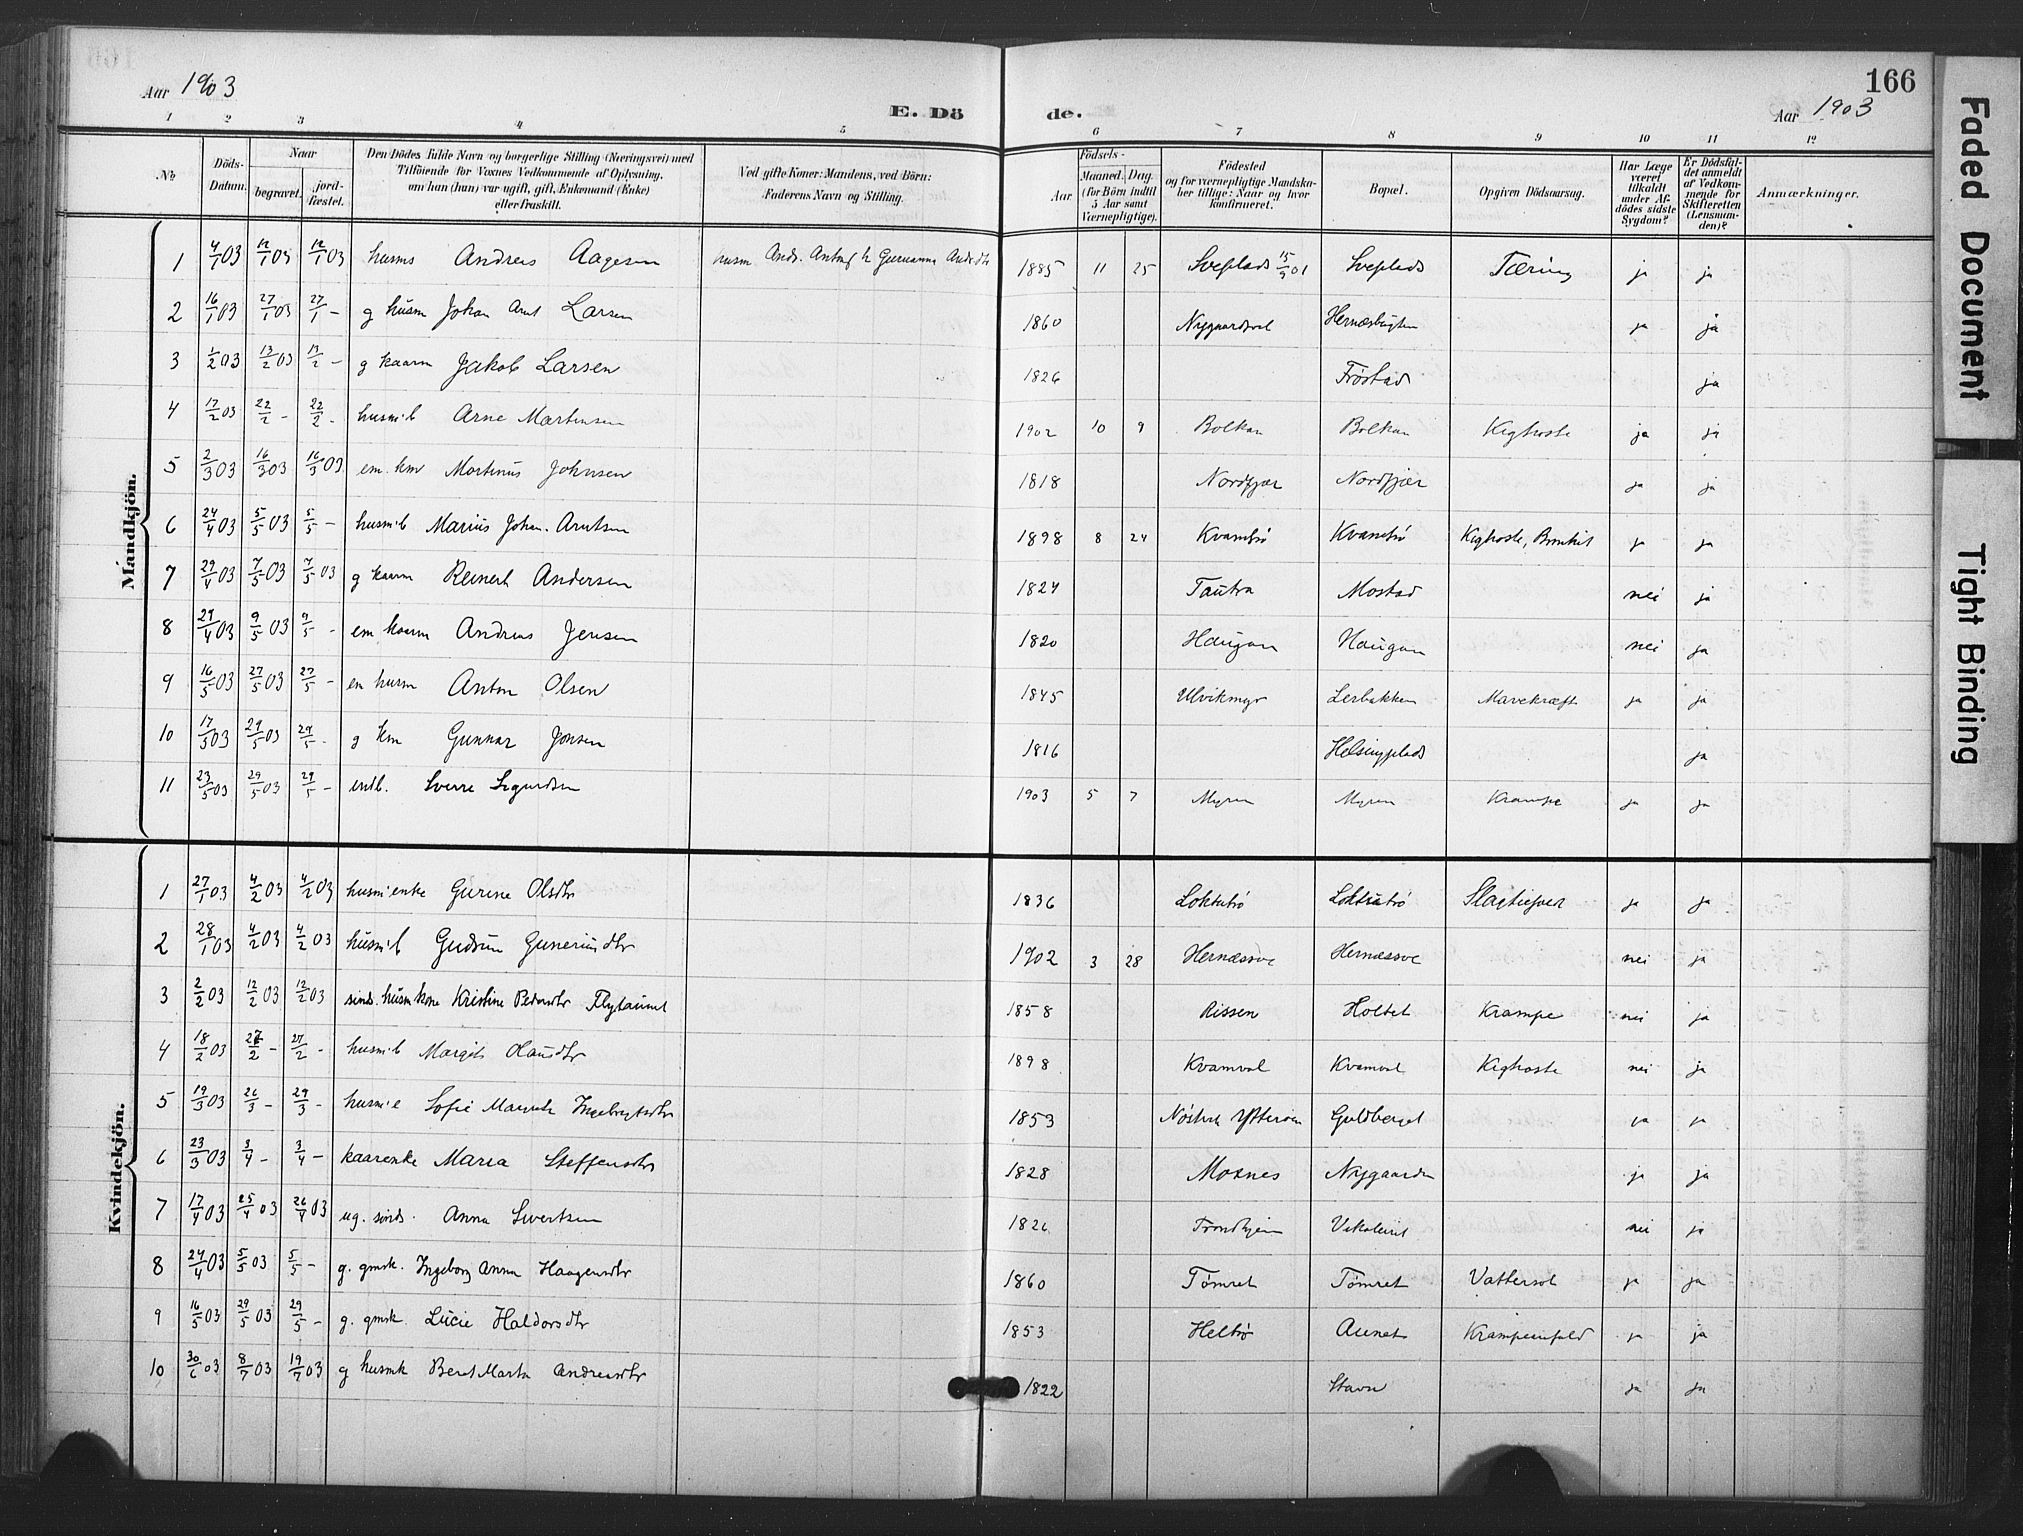 Aar 1903
E. Dö
de.
166
Aar 1903
1 2 3 4 5 6 7 8 9 10 11 12
No. Döds-Datum. Naar begravet. jord-fæstet. Den Dödes fulde Navn og borgerlige Stilling (Næringsvei) med Tilföiende for Voxnes Vedkommende af Oplysning, om han (hun) var ugift, gift, Enkemand (Enke) eller fraskilt. Ved gifte Koner: Mandens, ved Börn: Faderens Navn og Stilling. Födsels- Aar Maaned. Dag. (for Börn indtil 5 Aar samt Værnepligtige). Födested og for værnepligtige Mandskaber tillige: Naar og hvor konfirmeret. Bopæl. Opgiven Dödsaarsag. Har Læge været tilkaldt under Afdödes sidste Sygdom? Er Dödsfaldet anmeldt af Vedkommende for Skifteretten (Lensmanden)? Anmærkninger.
Mandkjön.
1 4/1 03 12/1 03 12/1 03 husms Andreas Aagesen husm Ands. 1885 11 25 Sveplads 15/9 01 Sveplads Tæring ja ja
2 16/1 03 27/1 03 27/1 - g husm Johan Arnt Larsen 1860 Nygaardsval Hernæsbugten ja ja
3 1/2 03 13/2 03 13/2 - g kaarm Jakob Larsen 1826 Frøstad ja
4 17/2 03 22/2 - 22/2 - husm.b Arne Martinsen 1902 10 9 Bolkan Bolkan Kighoste ja ja
5 2/3 03 16/3 03 16/3 03 em. km Martinus Johnsen 1818 Nordfjær Nordfjær ja ja
6 24/4 03 5/5 03 5/5 - husm.b Marius Johan. Arntsen 1898 8 24 Kvamtrø Kvamtrø Kighoste, Bronkit ja ja
7 29/4 03 7/5 03 7/5 03 g kaarm Reinert Andersen 1824 Tautra Mostad nei ja
8 29/4 03 9/5 03 9/5 - em. kaarm Andreas Jensen 1820 Haugan Haugan nei ja
9 16/5 03 27/5 03 27/5 - em husm Anton Olsen 1845 Ulvikmyr Lerbakken Mavekræft ja ja
10 17/5 03 29/5 03 29/5 - g km Gunnar Jonsen 1816 Helsingplads ja
11 23/5 03 29/5 03 29/5 - indb. Sverre Sigurdsen 1903 5 7 Myren Myren Krampe ja ja
Kvindekjön.
1 27/1 03 4/2 03 4/2 03 husm'enke Gurine Olsdtr 1836 Loktutrø Loktutrø ja ja
2 28/1 03 4/2 03 4/2 03 husm'b Gudrun Guneriusdtr 1902 3 28 Hernæsve Hernæsvoe nei ja
3 2/2 03 12/2 03 12/2 03 sinds. husm kone Kristine Pedersdtr Flytaunet 1858 Rissen Holtet Krampe nei ja
4 18/2 03 27/2 - 27/2 - husm.b Margit Olausdtr 1898 Kvamval Kvamval Kighoste nei ja
5 19/3 03 26/3 - 29/3 - husm'e Sofie Margrete Ingebrigtsdtr 1853 Ytterøen Guldberget ja ja
6 23/3 03 3/4 - 3/4 - kaarenke Maria Steffensdtr 1828 Moxnes Nygaarden ja ja
7 17/4 03 25/4 03 26/4 03 ug. sinds. Anna Sivertsen 1826 Trondhjem nei ja
8 24/4 03 5/5 03 5/5 - g. gmsk. Ingeborg Anna Haagensdtr 1860 Tømret Tømret Vattersot ja ja
9 16/5 03 29/5 03 29/5 - g. gmsk Lucie Haldorsdtr 1853 Heltrø Aunet Krampeanfald ja ja
10 30/6 03 8/7 03 19/7 03 g husmk Beret Marta Andreasdtr 1822 Stavn ja ja
Faded Document
Tight Binding